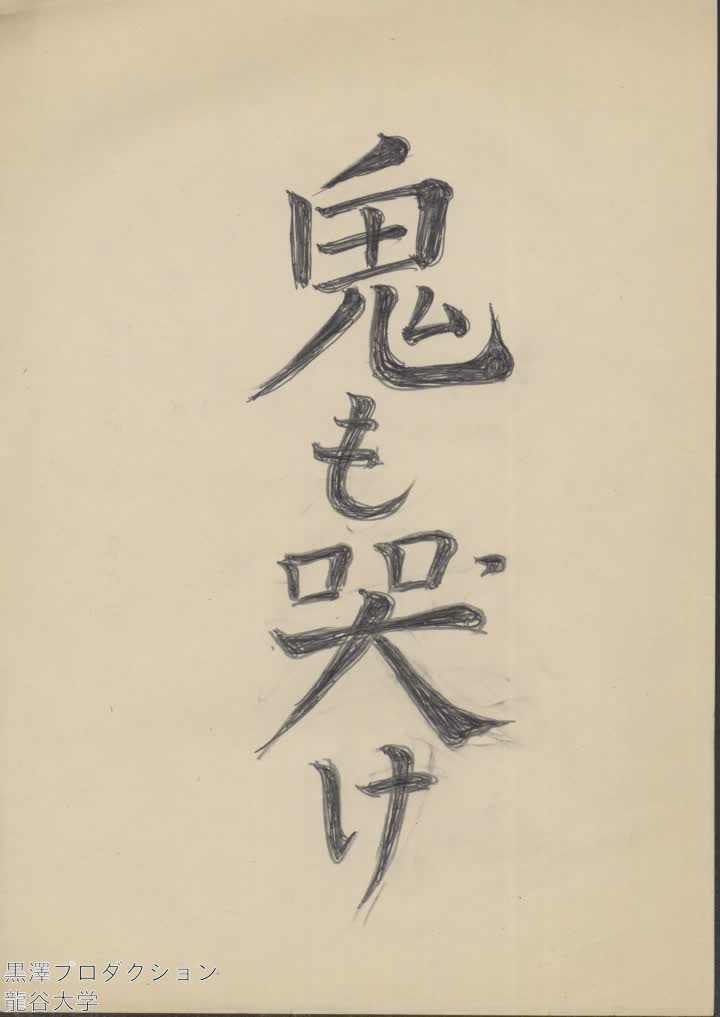 鬼も哭け
黒澤プロダクション
龍谷大学